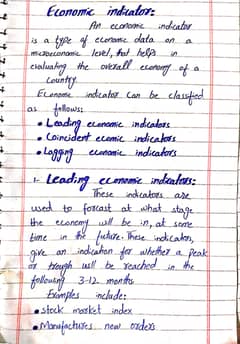 Economic indicator:-
An economic indicator
is a type of economic data on a
microeconomic level, that helps in
evaluating the overall economy of a
country.
Economic indicator can be classified
as follows:
• Leading economic indicators
• Coincident ecomic indicators
• Lagging economic indicators
1- Leading economic indicators:
These indicators are
used to forcast at what stage
the economy will be in, at some
time in the future. These indicators,
give an indication for whether a peak
or trough will be reached in the
following 3-12 months
Examples include:
• stock market index
• Manufactures new orders